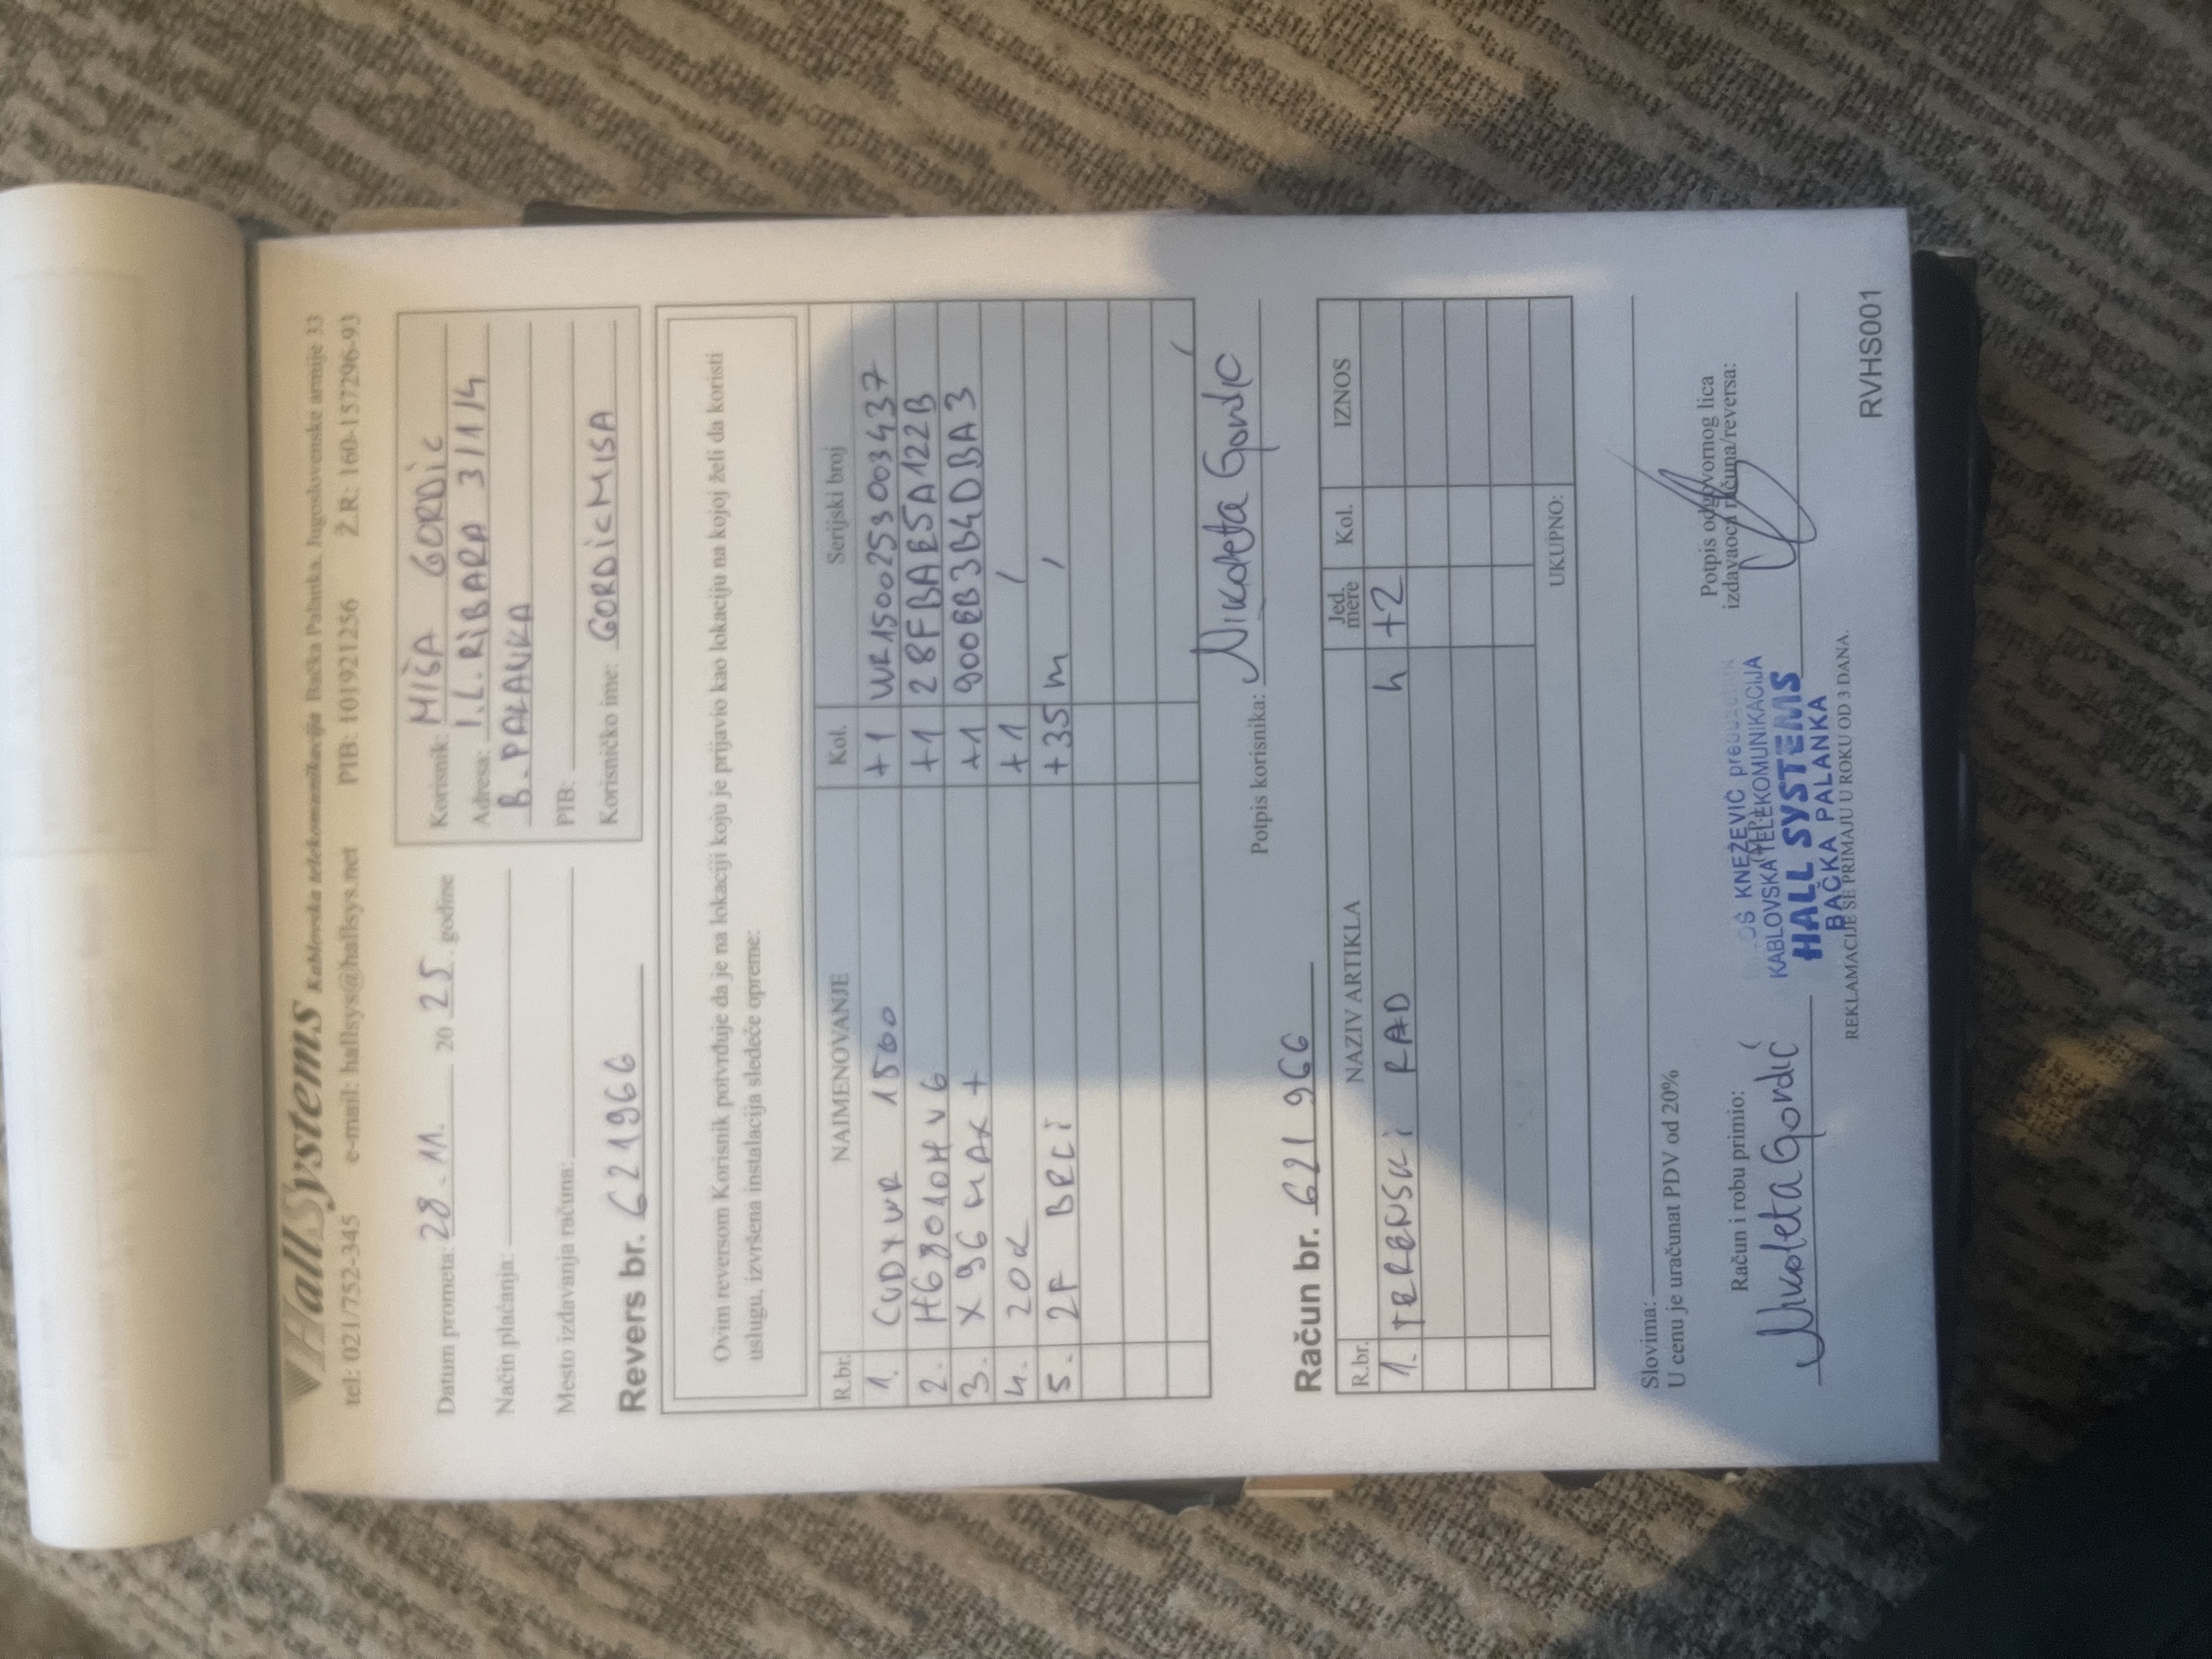 HallSystems Kablovska telekomunikacija Bačka Palanka, Jugoslovenske armije 33
tel: 021/752-345 e-mail: hallsys@hallsys.net PIB: 101921256 Ž.R: 160-157296-93
Datum prometa: 28.11. 20 25. godine
Način plaćanja:
Mesto izdavanja računa:
Revers br. 621966
Korisnik: MIŠA GORDIĆ
Adresa: I.L. RIBARA 3/1/4
B. PALANKA
PIB:
Korisničko ime: GORDICMISA
Ovim reversom Korisnik potvrđuje da je na lokaciji koju je prijavio kao lokaciju na kojoj želi da koristi
uslugu, izvršena instalacija sledeće opreme:
R.br. NAJMENOVANJE Kol. Serijski broj
1. CUDY WR 1500 +1 WR15002530034 37
2. HG8010H V6 +1 28FBAE5A122B
3. X96 MAX + +1 900EB3B4DBA3
4. 20L +1 /
5. 2F BRLI +35 m /
Potpis korisnika: Nikoleta Gordić
Račun br. 621966
R.br. NAZIV ARTIKLA Jed. mere Kol. IZNOS
1. TERENSKI RAD h +2
UKUPNO:
Slovima:
U cenu je uračunat PDV od 20%
Račun i robu primio:
Nikoleta Gordić
OŠ KNEŽEVIĆ
KABLOVSKA TELEKOMUNIKACIJA
HALL SYSTEMS
BAČKA PALANKA
Potpis odgovornog lica
izdavaoca računa/reversa:
REKLAMACIJE SE PRIMAJU U ROKU OD 3 DANA.
RVHS001